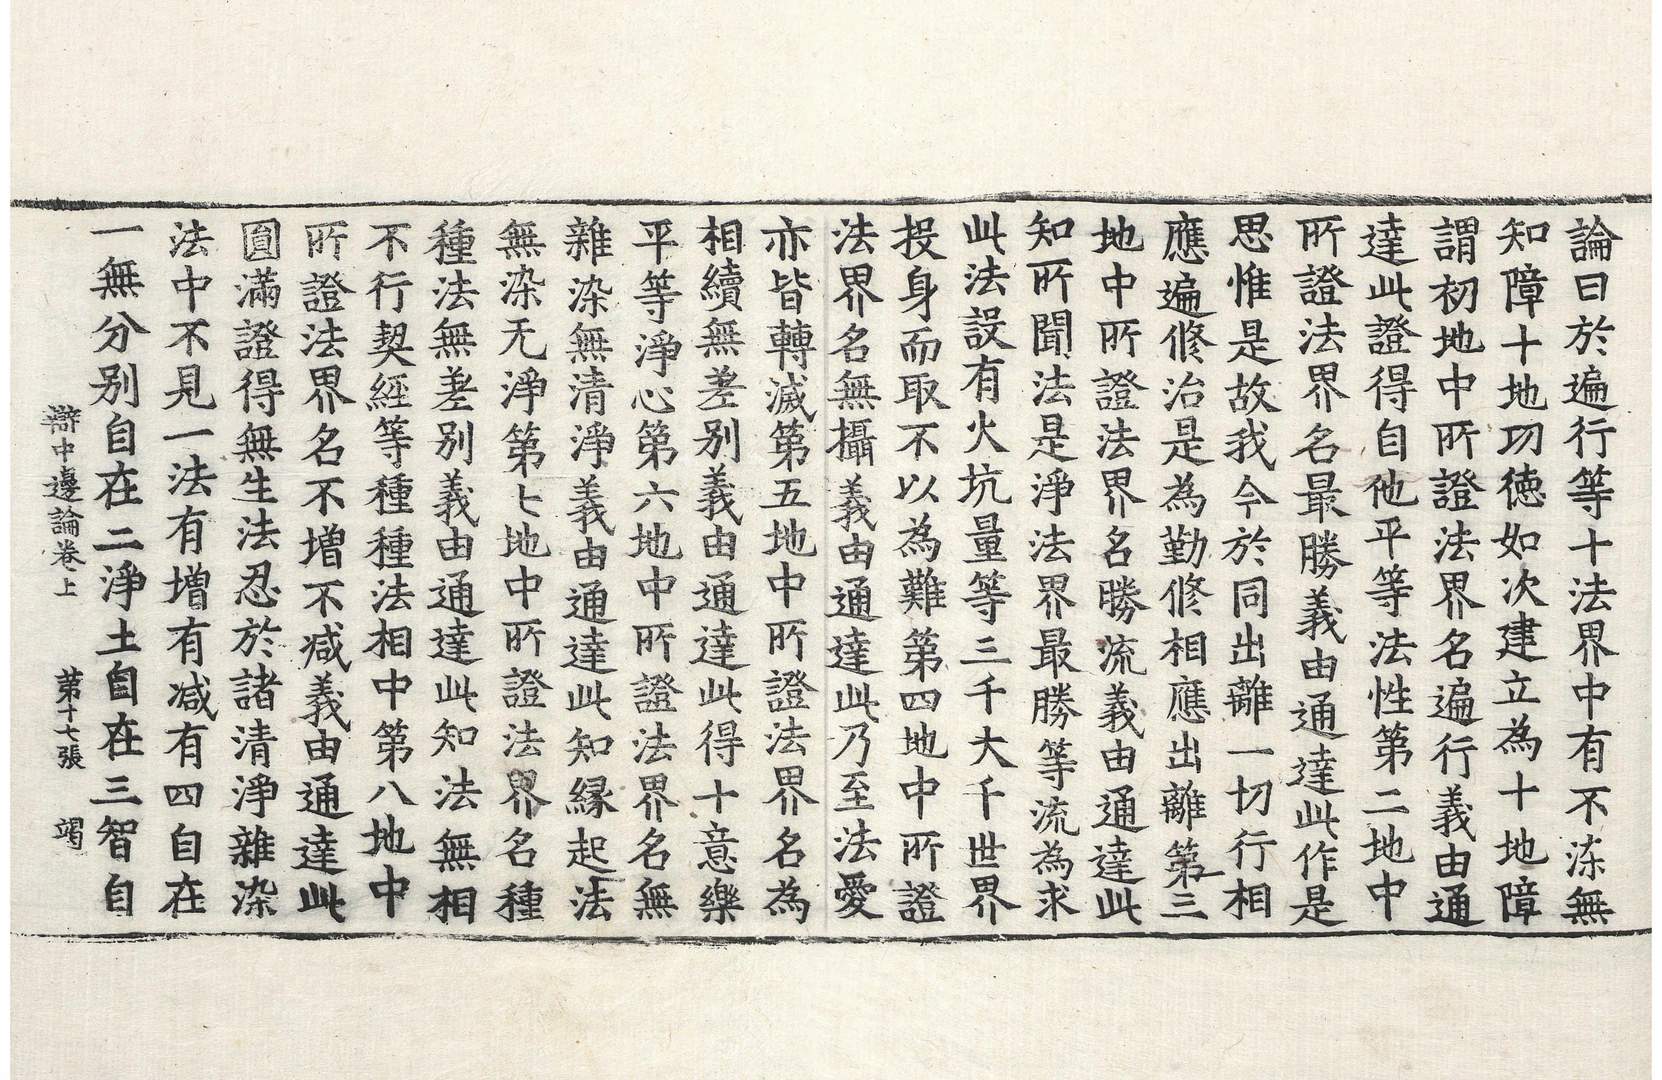 論曰於遍行等十法界中有不染無
知障十地功徳如次建立為十地障
謂初地中所證法界名遍行義由通
達此證得自他平等法性第二地中
所證法界名最勝義由通達此作是
思惟是故我今於同出離一切行相
應遍修治是為勤修相應出離第三
地中所證法界名勝流義由通達此
知所聞法是淨法界最勝等流為求
此法設有火坑量等三千大千世界
投身而取不以為難第四地中所證
法界名無攝義由通達此乃至法愛
亦皆轉滅第五地中所證法界名為
相續無差別義由通達此得十意樂
平等淨心第六地中所證法界名無
雜染無清淨義由通達此知緣起法
無染无淨第七地中所證法界名種
種法無差別義由通達此知法無相
不行契經等種種法相中第八地中
所證法界名不增不減義由通達此
圓滿證得無生法忍於諸清淨雜染
法中不見一法有增有減有四自在
一無分別自在二淨土自在三智自
辯中邊論卷上 第十七張 竭